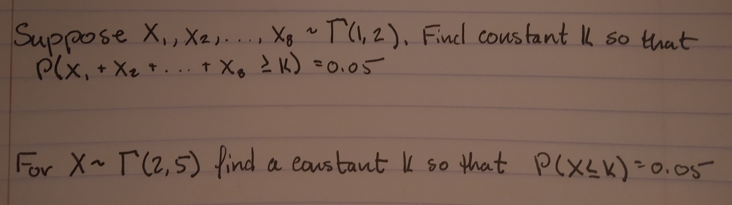 Suppose X₁, X₂, ..., X₈ ~ Γ(1,2). Find constant k so that
P(X₁ + X₂ + ... + X₈ ≥ k) = 0.05
For X ~ Γ(2,5) find a constant k so that P(X ≤ k) = 0.05